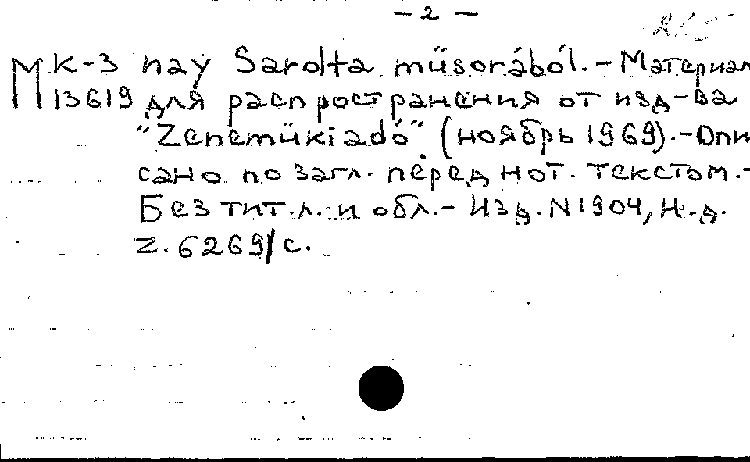 — 2 —
М К-3 nay Sarolta műsorából. – Материал
13619 для распространения от изд-ва
"Zeneműkiadó" (ноябрь 1969). – Опи
сано по загл. перед нот. текстом. –
Без тит. л. и обл. – Изд. N 1904, Н. д.
Z. 6269/c.